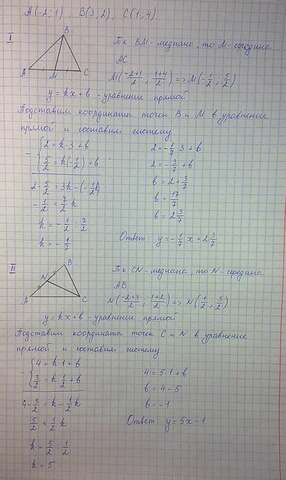 A(-2;1) B(3;2), C(1;4)
I
B
A M C
Т.к BM-медиана, то M-середина
AC
M(-2+1/2; 1+4/2) => M(-1/2; 5/2)
y=kx+b-уравнение прямой
Подставим координаты точек B и M в уравнение
прямой и составим систему
{2=k·3+b
5/2=k(-1/2)+b
2-5/2=3k-(-1/2k)
-1/2=7/2k
k=-1/2·2/7
k=-1/7
2=-1/7·3+b
2=-3/7+b
b=2+3/7
b=17/7
b=2 3/7
Ответ: y=-1/7x+2 3/7
II
B
N
A C
Т.к CN-медиана, то N-середина
AB
N(-2+3/2; 1+2/2) => N(1/2; 3/2)
y=kx+b-уравнение прямой
Подставим координаты точек C и N в уравнение
прямой и составим систему
{4=k·1+b
3/2=k·1/2+b
4-3/2=k-1/2k
5/2=1/2k
k=5/2:1/2
k=5
4=5·1+b
b=4-5
b=-1
Ответ: y=5x-1